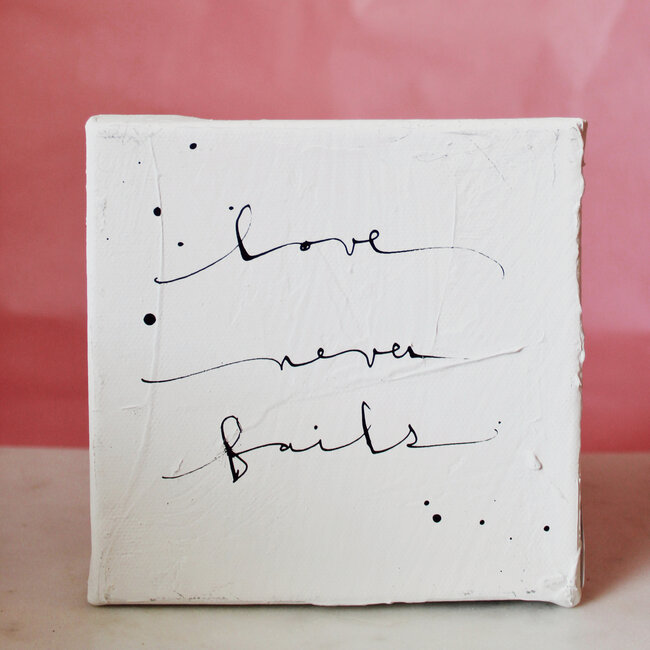 love
never
fails